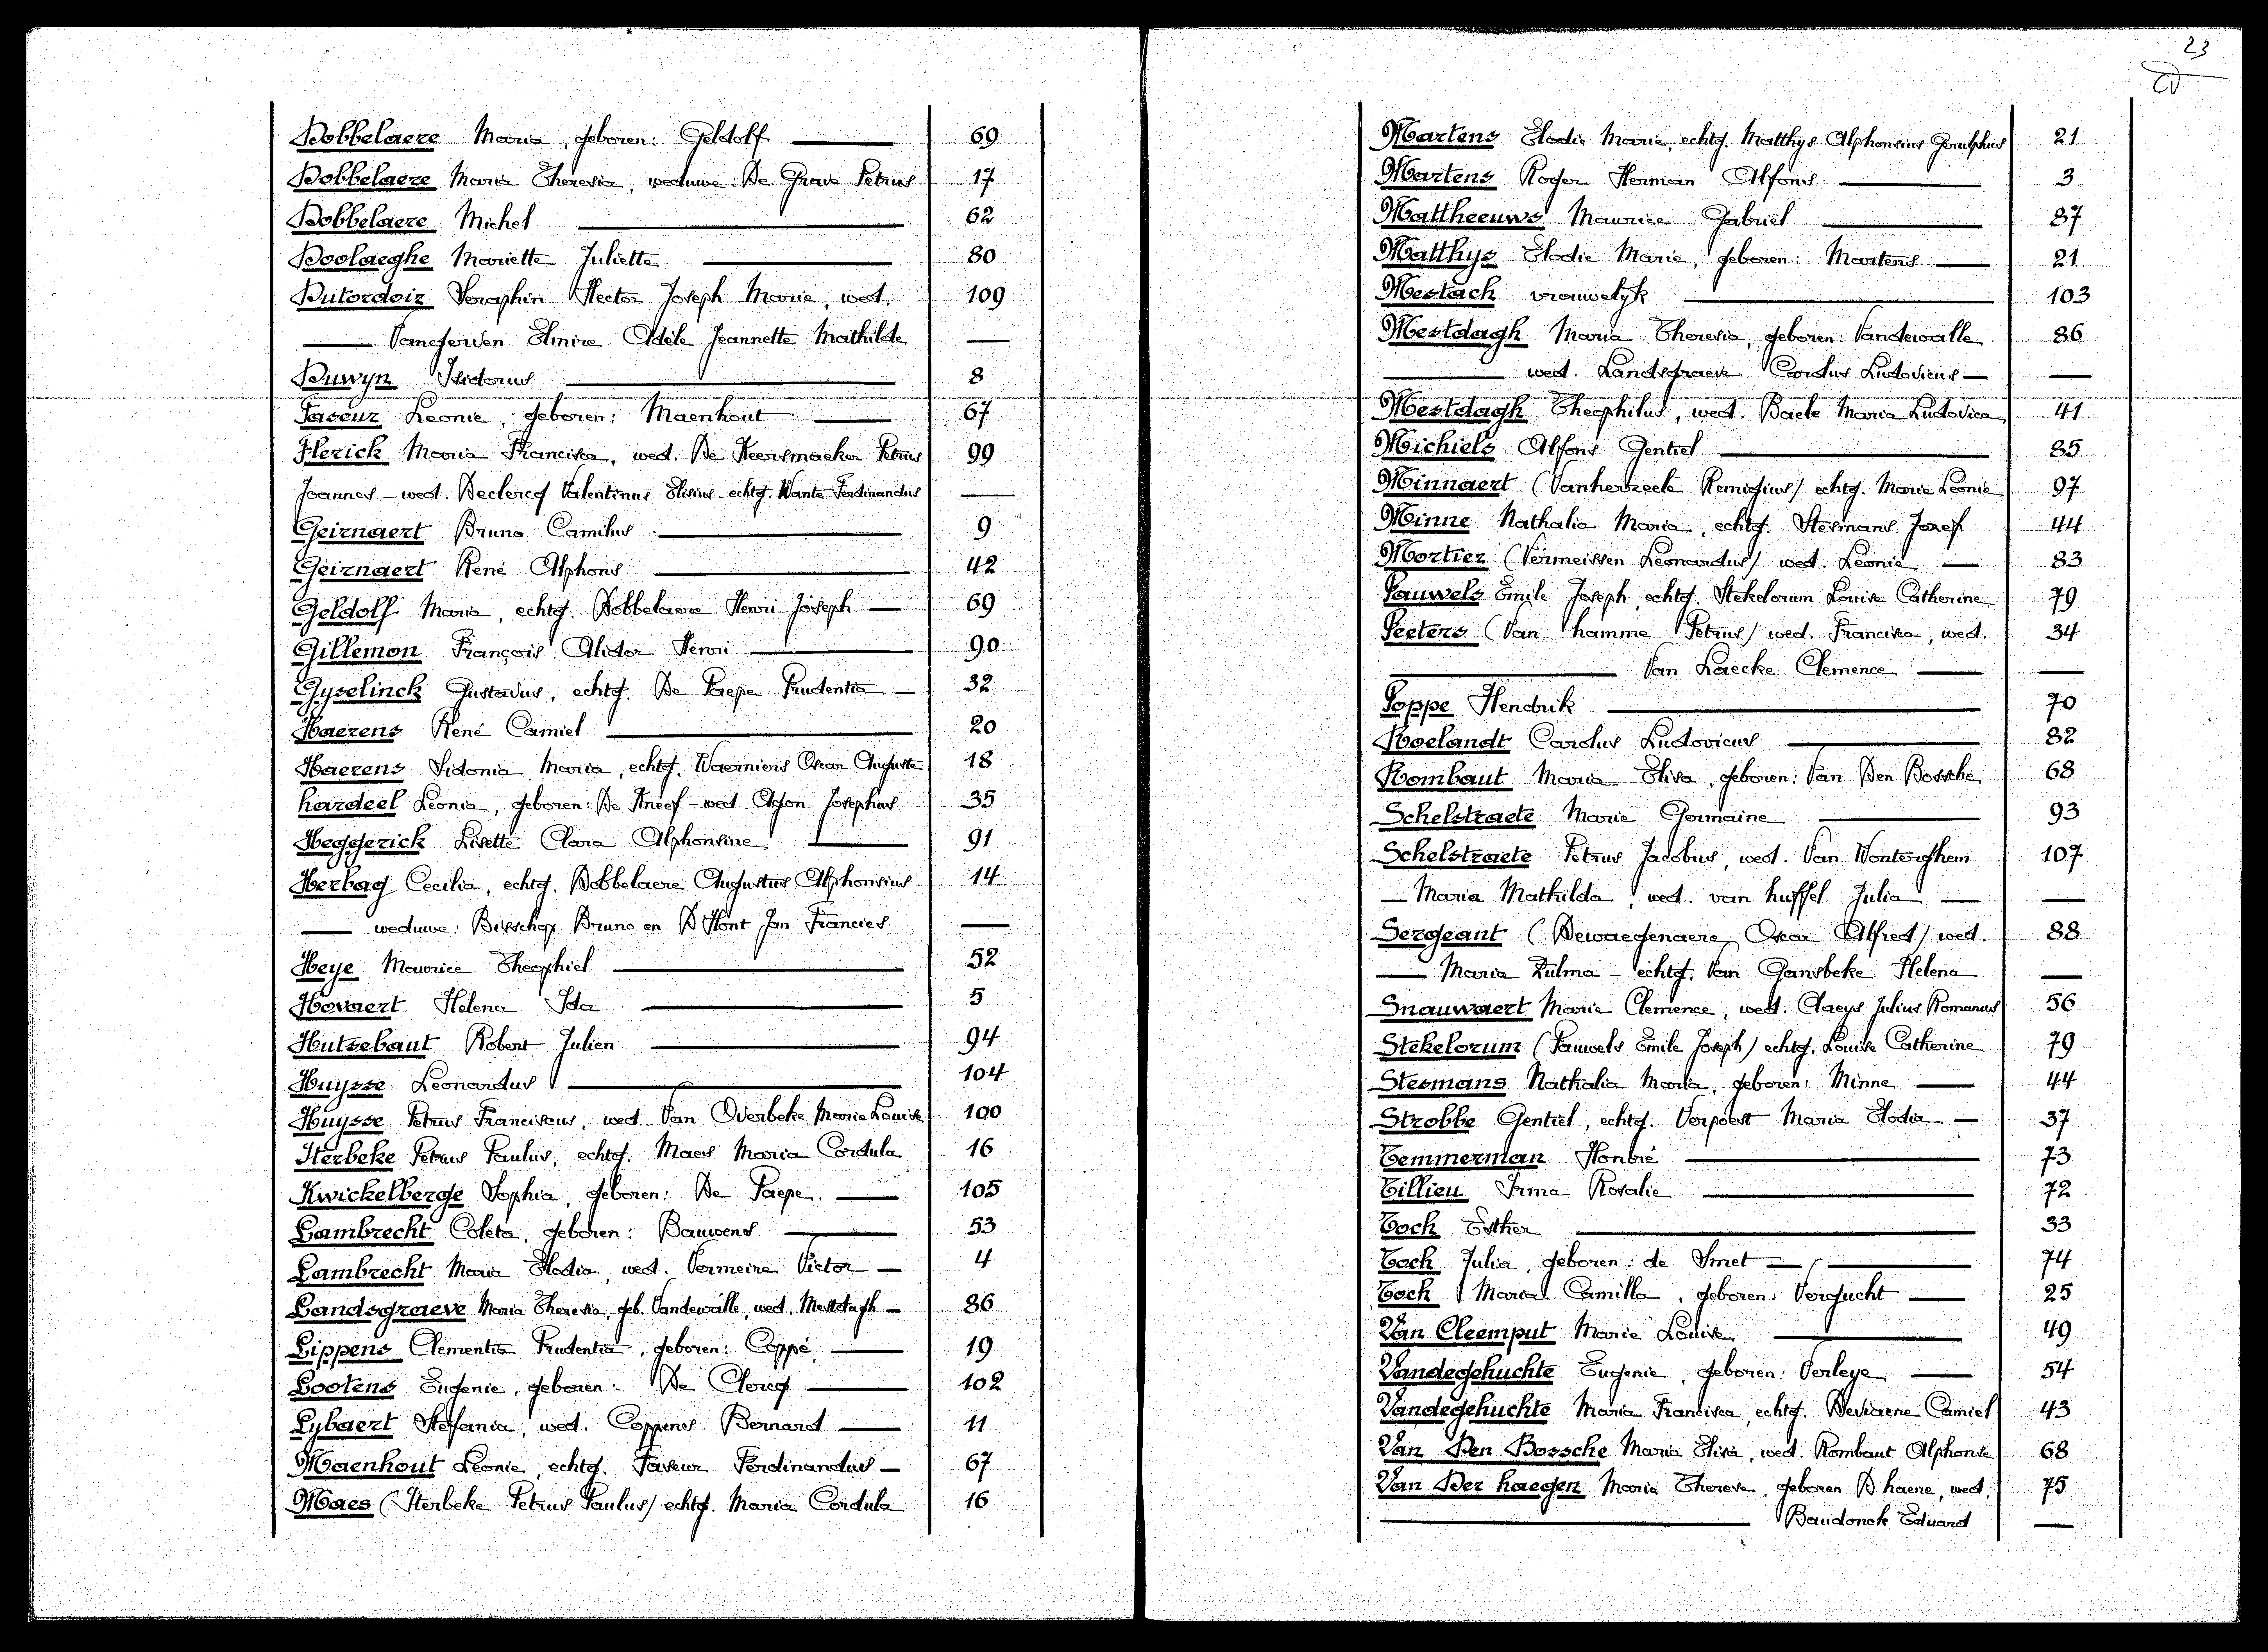 Dobbelaere Maria, geboren: Geldolf — 69
Dobbelaere Maria Theresia, weduwe: De Grave Petrus 17
Dobbelaere Michel — 62
Doolaeghe Mariette Juliette — 80
Dutordoir Seraphin Hector Joseph Marie, wed. 109
— Vangerven Elmire Adèle Jeannette Mathilde —
Duwyn Isidorus — 8
Faseur Leonie, geboren: Maenhout — 67
Flerick Maria Francisca, wed. De Keersmaeker Petrus 99
Joannes – wed. Declercq Valentinus Elisius – echtg. Wante Ferdinandus —
Geirnaert Bruno Camilus — 9
Geirnaert René Alphons — 42
Geldolf Maria, echtg. Dobbelaere Henri Joseph — 69
Gillemon François Alidor Henri — 90
Gyselinck Gustavus, echtg. De Paepe Prudentia — 32
Haerens René Camiel — 20
Haerens Sidonia Maria, echtg. Waerniers Oscar Auguste 18
hardeel Leonia, geboren: De Kneef – wed. Agon Josephus 35
Heggerick Lisette Clara Alphonsine — 91
Herbag Cecilia, echtg. Dobbelaere Augustus Alphonsius 14
— weduwe: Bisschop Bruno en D'Hont Jan Francies —
Heye Maurice Theophiel — 52
Hovaert Helena Ida — 5
Hutsebaut Robert Julien — 94
Huysse Leonardus — 104
Huysse Petrus Franciscus, wed. Van Overbeke Marie Louise 100
Iterbeke Petrus Paulus, echtg. Maes Maria Cordula 16
Kwickelberge Sophia, geboren: De Paepe. — 105
Lambrecht Coleta, geboren: Bauwens — 53
Lambrecht Maria Elodia, wed. Vermeire Victor — 4
Landsgraeve Maria Theresia, geb. Vandewalle, wed. Mestdagh — 86
Lippens Clementia Prudentia, geboren: Coppé, — 19
Lootens Eugenie, geboren: De Clercq — 102
Lybaert Stefania, wed. Coppens Bernard — 11
Maenhout Leonie, echtg. Faseur Ferdinandus — 67
Maes (Iterbeke Petrus Paulus/ echtg. Maria Cordula 16
23
Martens Elodie Marie, echtg. Matthys Alphonsius 21
Martens Roger Herman Alfons — 3
Mattheeuws Maurice Gabriel — 87
Matthys Elodie Marie, geboren: Martens — 21
Mestach vrouwelyk — 103
Mestdagh Maria Theresia, geboren: Vandewalle 86
— wed. Landsgraeve Carolus Ludovicus — —
Mestdagh Theophilus, wed. Baele Maria Ludovica 41
Michiels Alfons Gentiel — 85
Minnaert (Vanherzeele Remigius/ echtg. Marie Leonie 97
Minne Nathalia Maria, echtg. Stesmans Jozef 44
Mortier (Vermeissen Leonardus/ wed. Leonie — 83
Pauwels Emile Joseph, echtg. Stekelorum Louise Catherine 79
Peeters (Van hamme Petrus/ wed. Francisca, wed. 34
— Van Laecke Clemence — —
Poppe Hendrik — 70
Roelandt Carolus Ludovicus — 82
Rombaut Maria Elisa, geboren: Van Den Bossche 68
Schelstraete Marie Germaine — 93
Schelstraete Petrus Jacobus, wed. Van Wonterghem 107
— Maria Mathilda, wed. van huffel Julia — —
Sergeant (Dewaegenaere Oscar Alfred/ wed. 88
— Maria Zulma – echtg. Van Gansbeke Helena —
Snauwaert Marie Clemence, wed. Claeys Julius Romanus 56
Stekelorum (Pauwels Emile Joseph) echtg. Louise Catherine 79
Stesmans Nathalia Maria, geboren: Minne — 44
Strobbe Gentiel, echtg. Verpoest Maria Elodia — 37
Temmerman Honoré — 73
Tillieu Irma Rosalie — 72
Toch Esther — 33
Toch Julia, geboren: de Smet — 74
Toch Maria Camilla, geboren: Vergucht — 25
Van Cleemput Marie Louise — 49
Vandegehuchte Eugenie, geboren: Verleye — 54
Vandegehuchte Maria Francisca, echtg. Deviaene Camiel 43
Van Den Bossche Maria Elisa, wed. Rombaut Alphonse 68
Van Der haegen Maria Therese, geboren D'haene, wed. 75
— Baudonck Eduard —